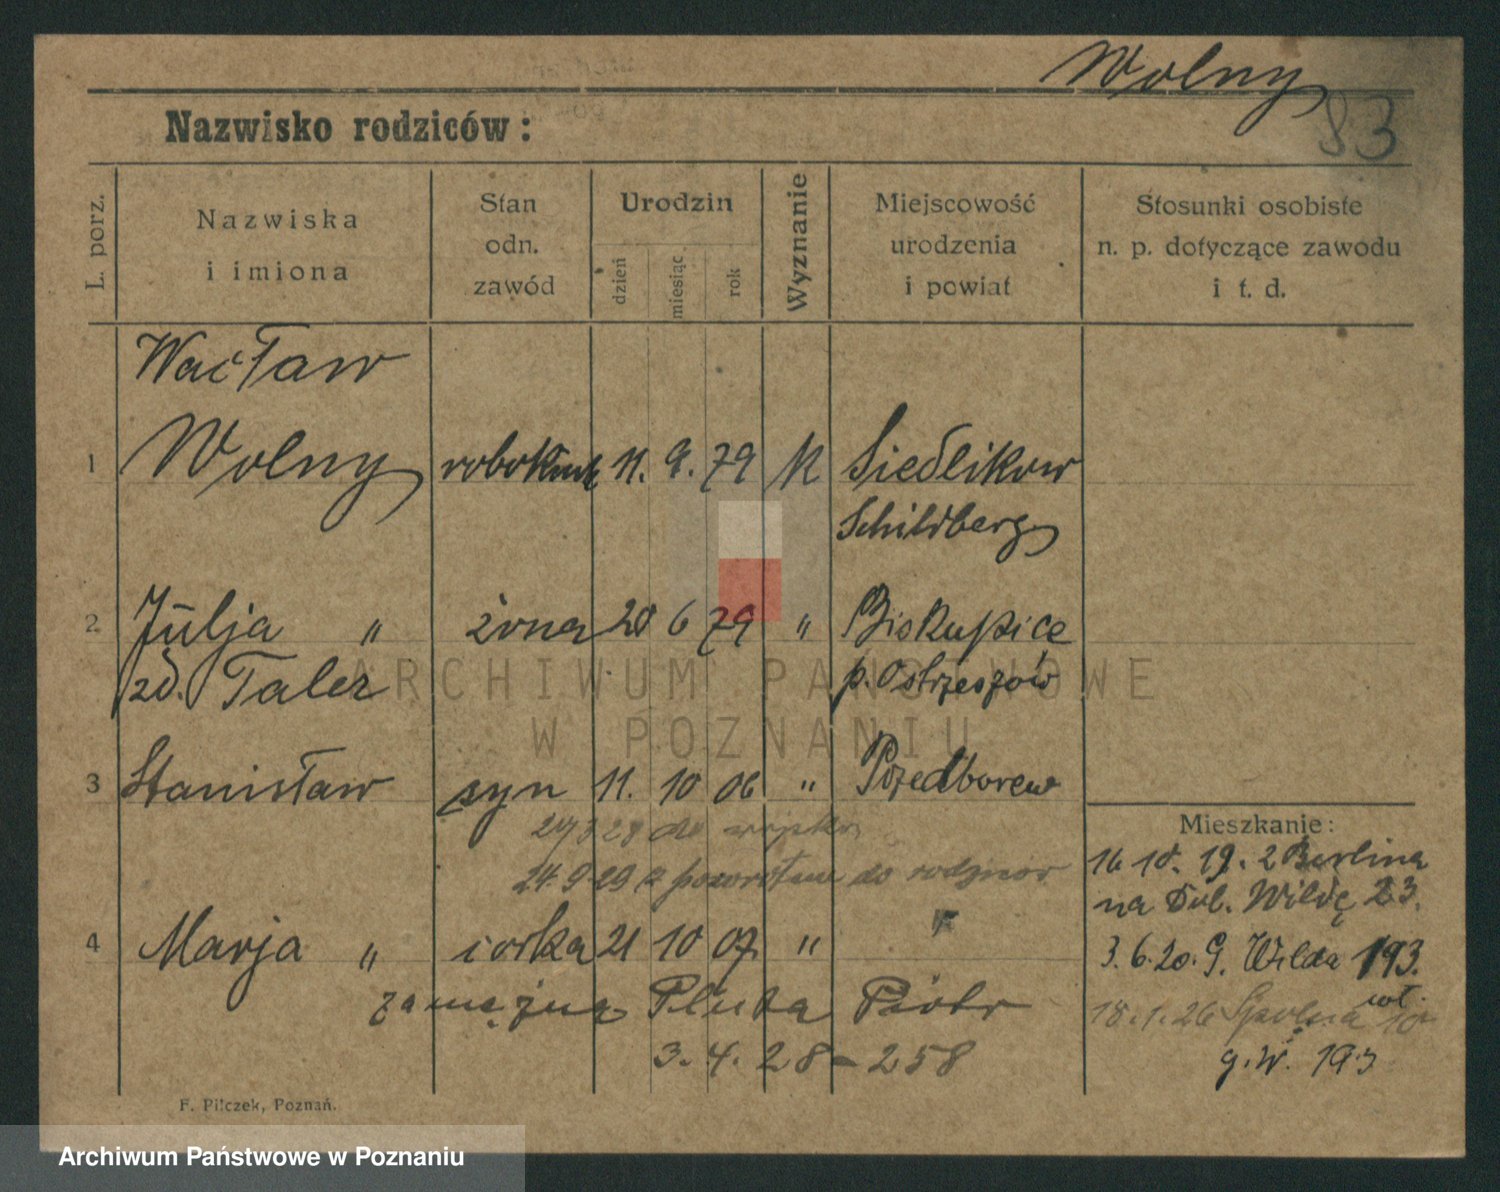 Wolny
83
Nazwisko rodziców:
L. porz.
Nazwiska
i imiona
Stan
odn.
zawód
Urodzin
dzień
miesiąc
rok
Wyznanie
Miejscowość
urodzenia
i powiat
Stosunki osobiste
n. p. dotyczące zawodu
i t. d.
Wacław
1 Wolny robotnik 11. 9. 79 K Siedlikow
Schildberg
2 Julja " żona 20 6 79 " Biskupice
zd. Taler p. Ostrzeszów
3 Stanisław syn 11. 10 06 " Przedborow
3 29 do wojska
24.9.29 z powrotem do rodziców
4 Marja " córka 21 10 07 " "
zamężna Pluta Piotr
3. 4. 28 - 258
Mieszkanie:
16.10.19. z Berlina
na Dol. Wildę 23.
3.6.20. G. Wilda 193.
18.1.26 Spolna 10
g. W. 193
F. Pilczek, Poznań.
ARCHIWUM PAŃSTWOWE
W POZNANIU
Archiwum Państwowe w Poznaniu